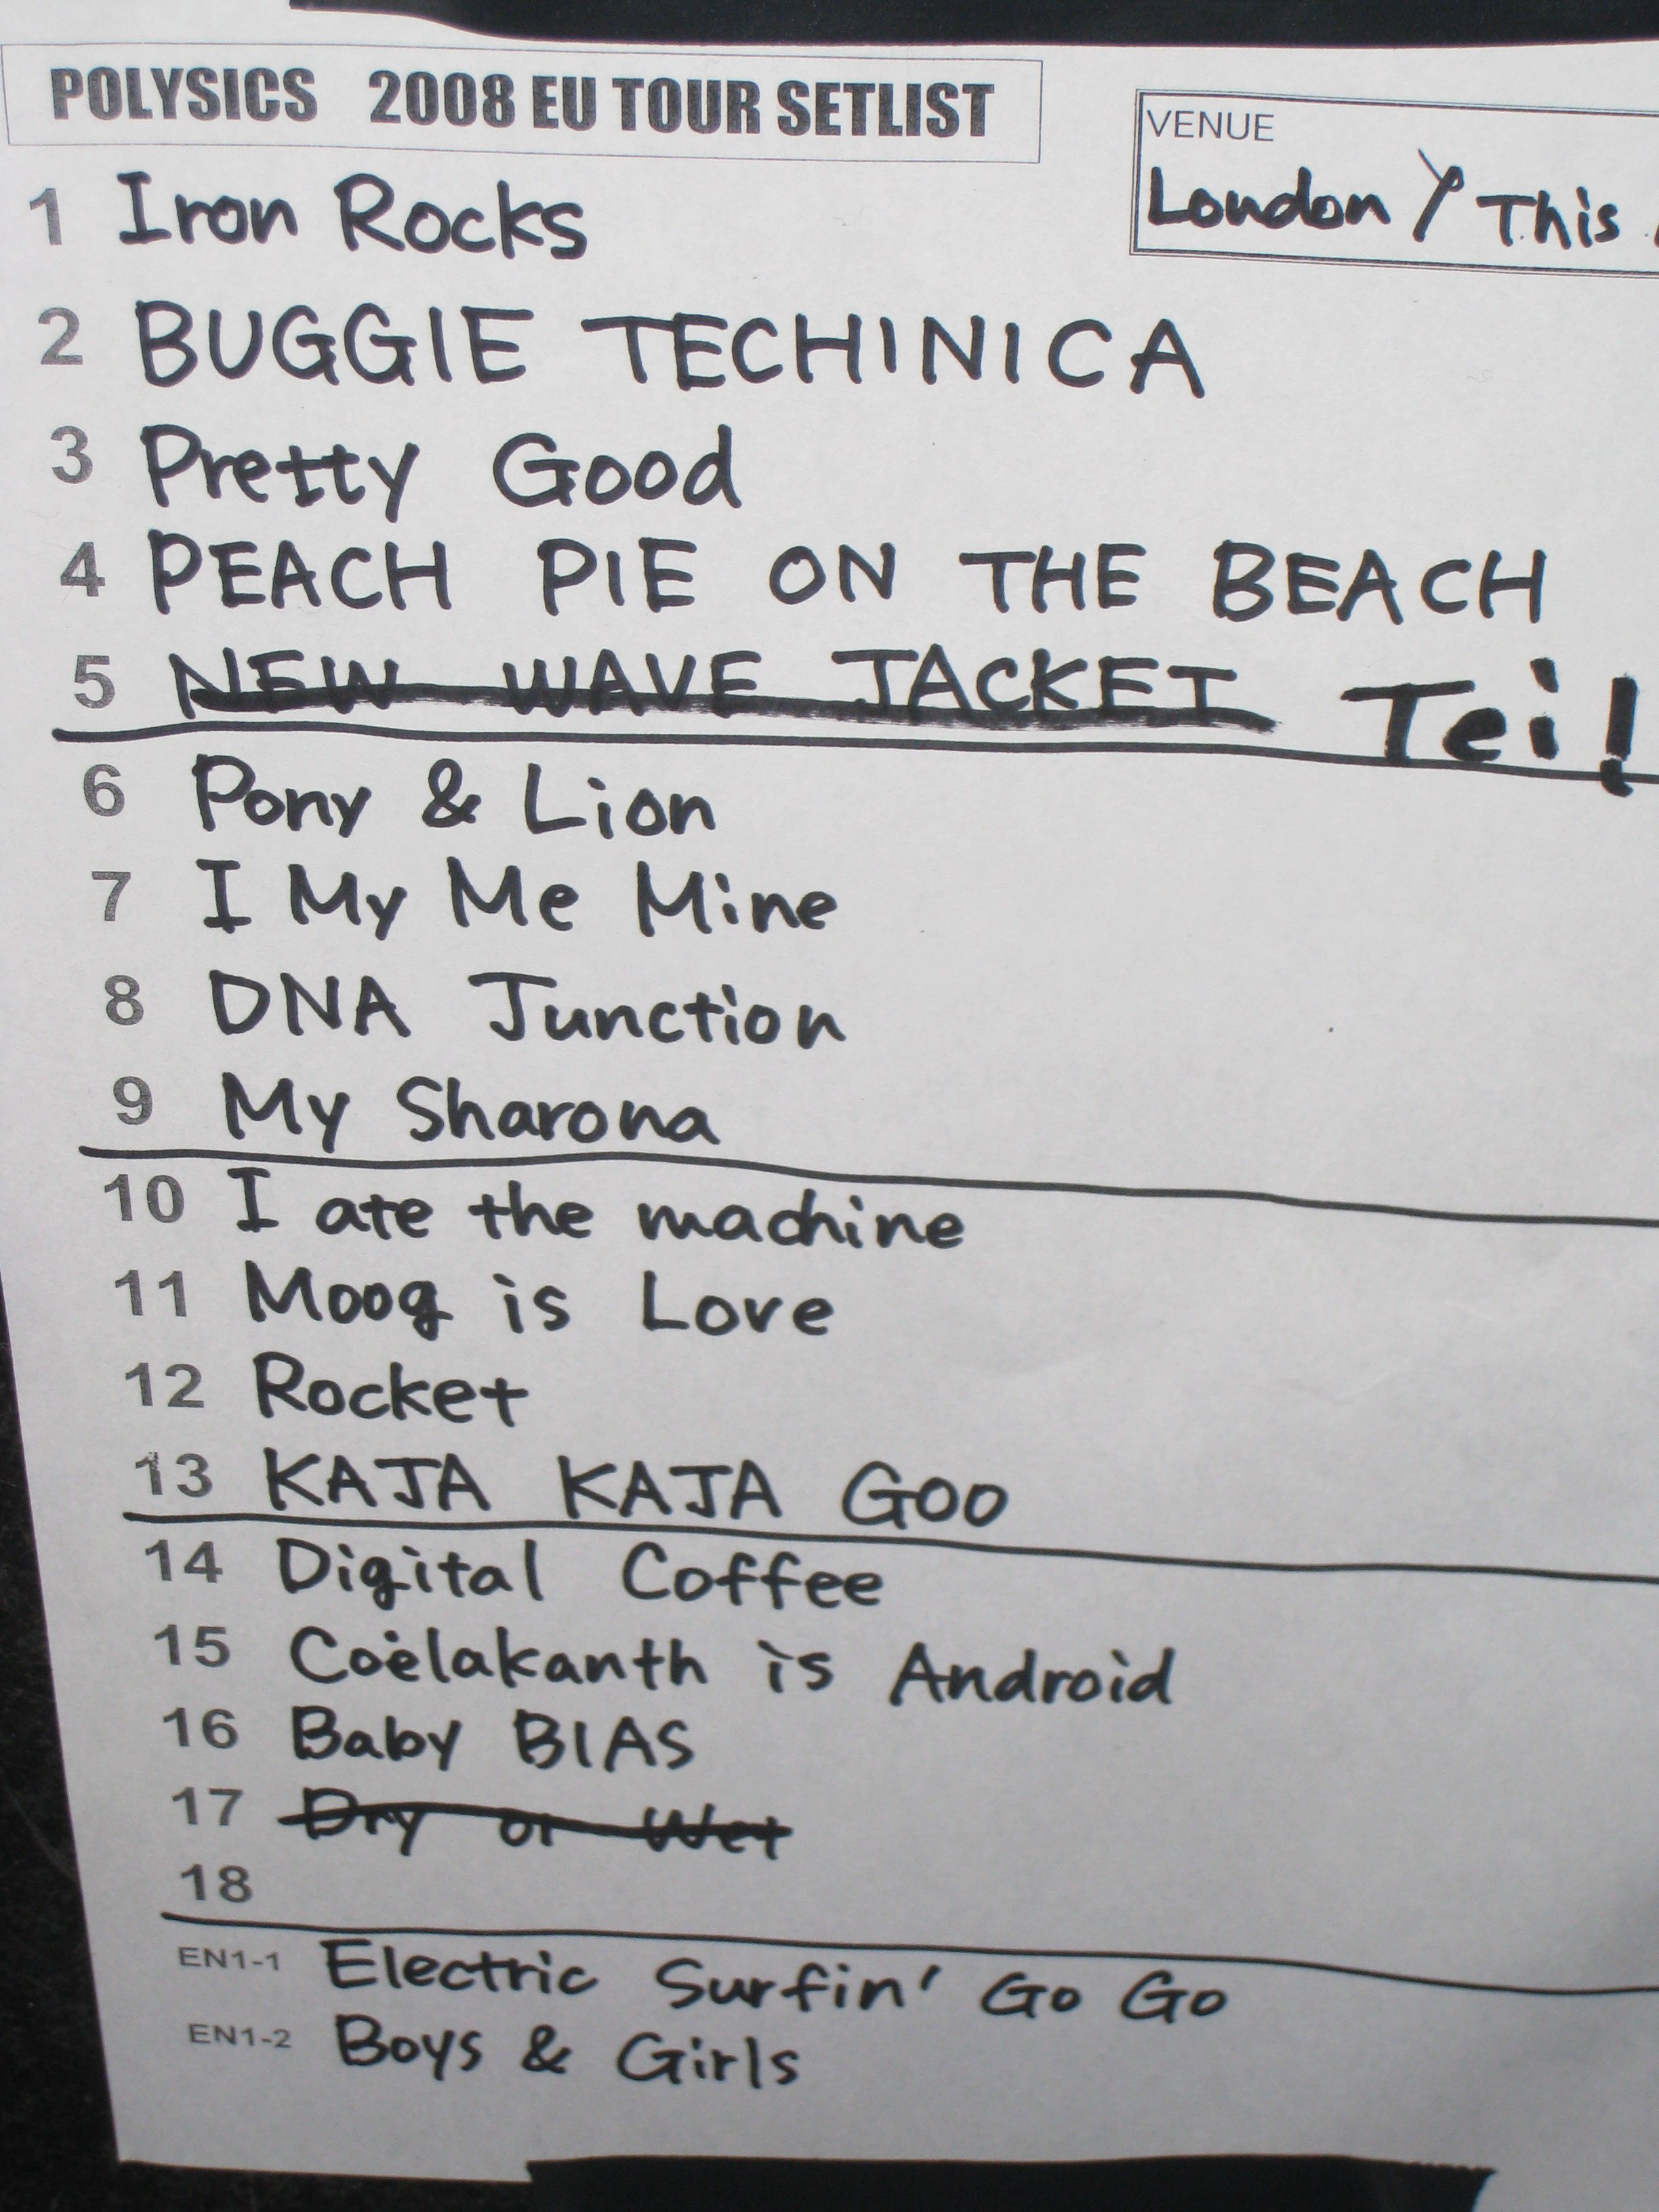 POLYSICS 2008 EU TOUR SETLIST
VENUE
London / This
1 Iron Rocks
2 BUGGIE TECHINICA
3 Pretty Good
4 PEACH PIE ON THE BEACH
5 NEW WAVE JACKET Tei!
6 Pony & Lion
7 I My Me Mine
8 DNA Junction
9 My Sharona
10 I ate the machine
11 Moog is Love
12 Rocket
13 KAJA KAJA GOO
14 Digital Coffee
15 Coelakanth is Android
16 Baby BIAS
17 Dry or Wet
18
EN1-1 Electric Surfin' Go Go
EN1-2 Boys & Girls